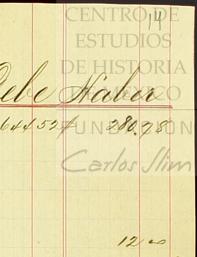 CENTRO DE
14
ESTUDIOS
DE HISTORIA
DE MÉXICO
Debe Haber
644 52 280.78
FUNDACIÓN
Carlos Slim
12 00